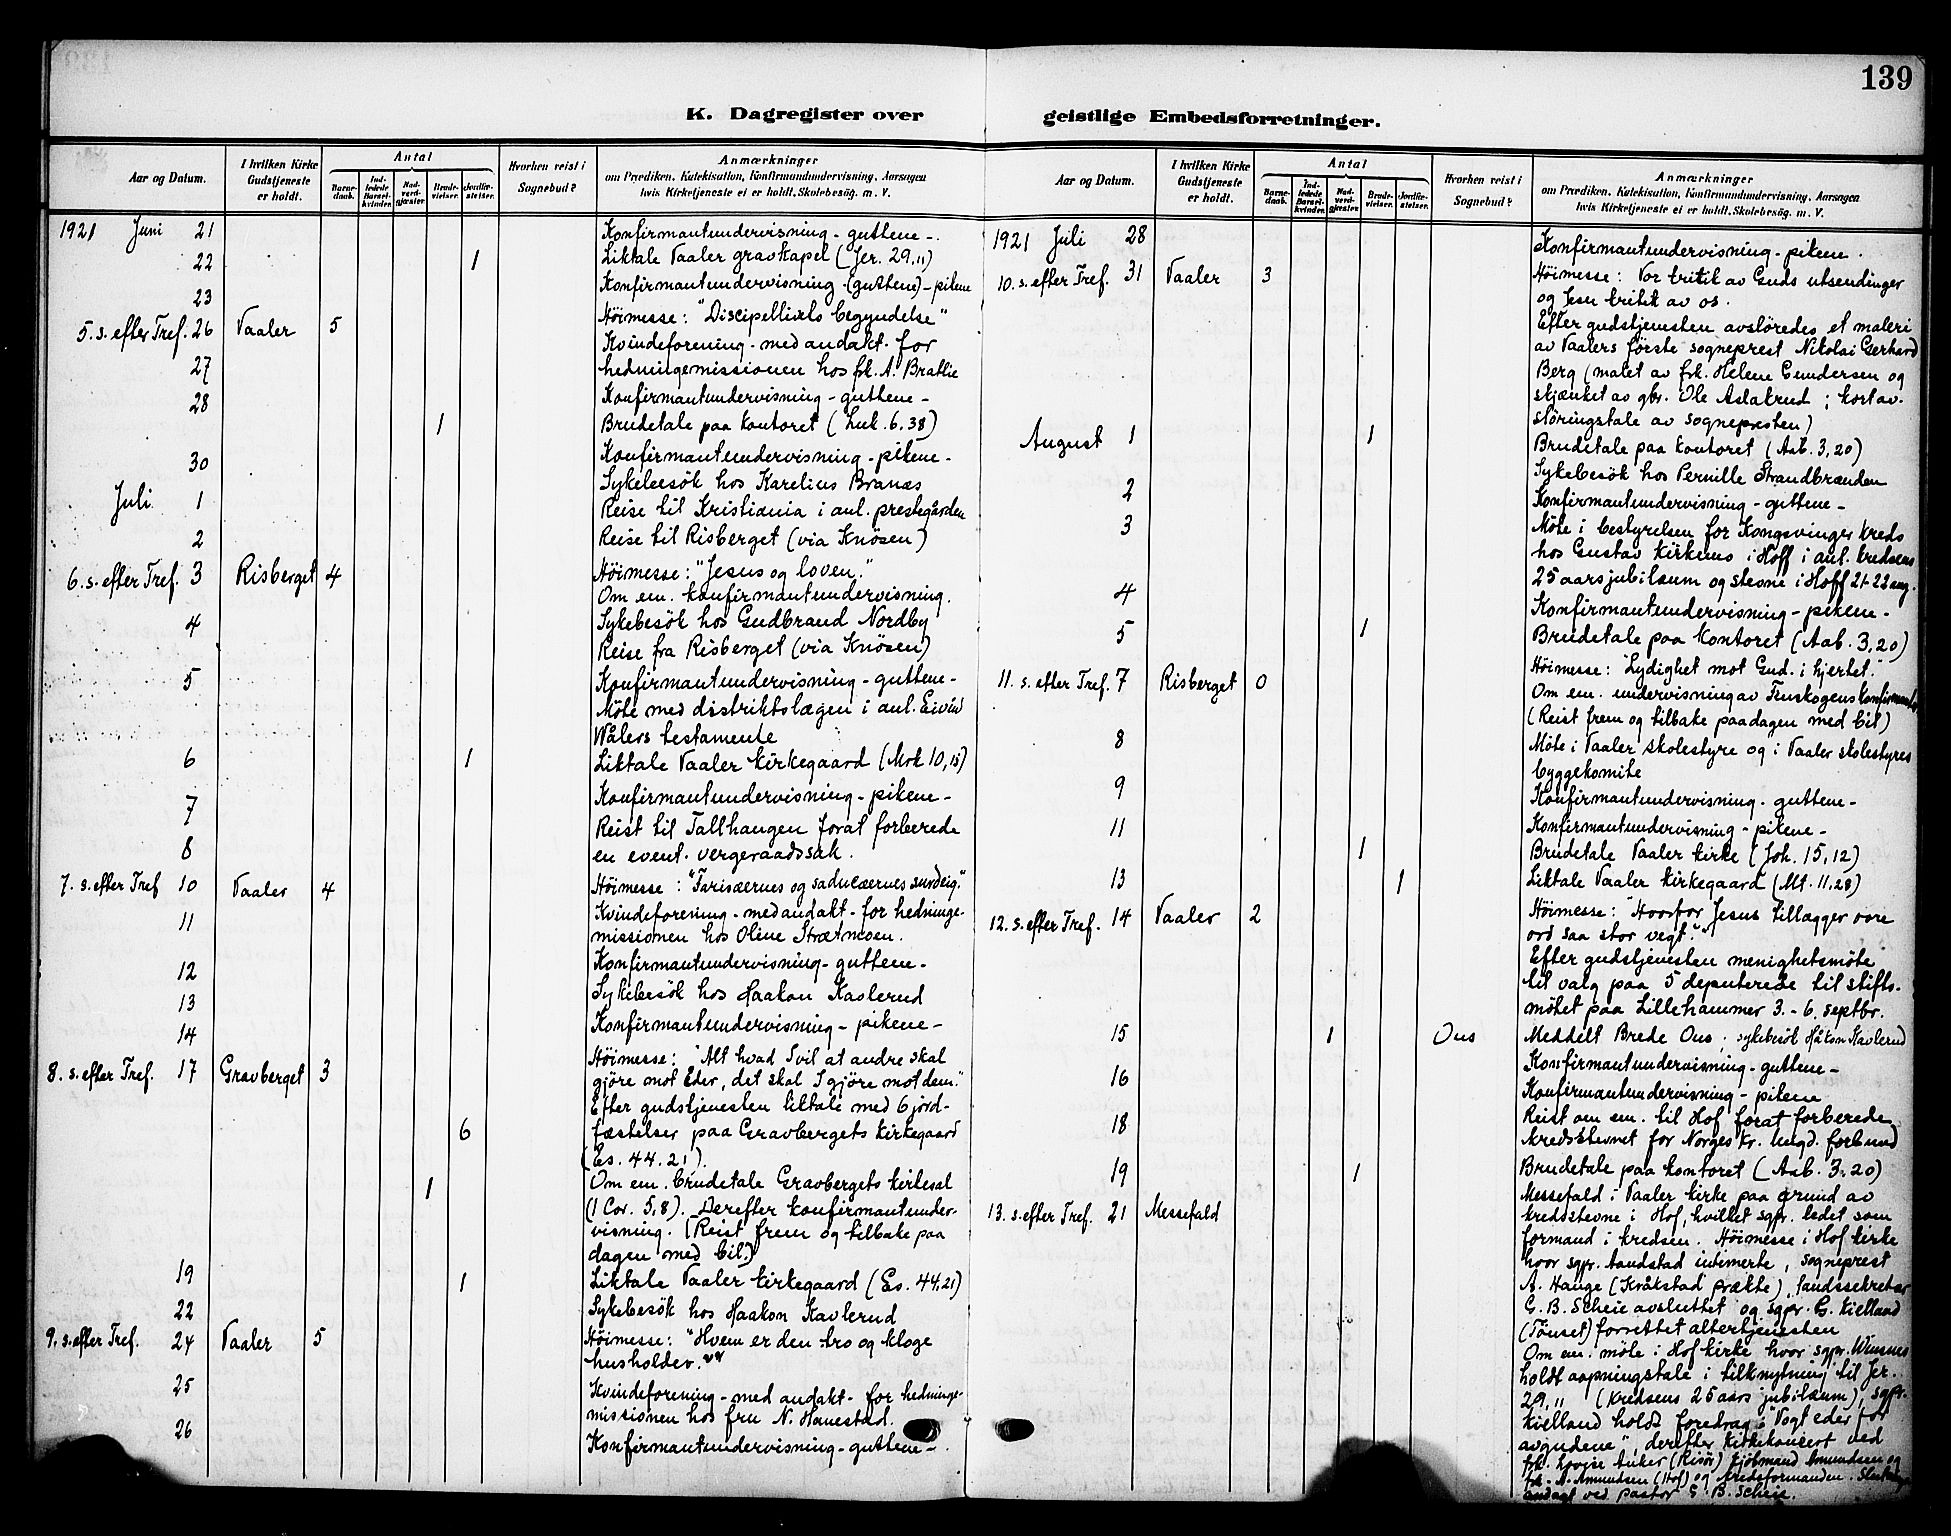 139
K. Dagregister over geistlige Embedsforretninger.
Aar og Datum.
I hvilken Kirke Gudstjeneste er holdt.
Antal
Barnedaab.
Indledede Barselkvinder.
Nadverdgjæster.
Brudevielser.
Jordfæstelser.
Hvorhen reist i Sognebud?
Anmærkninger
om Prædiken, Katekisation, Konfirmandundervisning, Aarsagen
hvis Kirketjeneste ei er holdt, Skolebesög. m. V.
1921 Juni 21 Konfirmantundervisning - guttene -.
22 1 Liktale Vaaler gravkapel (Jer. 29,11)
23 Konfirmantundervisning - (guttene) - pikene
5. s. efter Tref. 26 Vaaler 5 Höimesse: "Discipellivets begyndelse"
27 Kvindeforening - med andakt - for
hedningemissionen hos frk. A. Bratlie
28 Konfirmantundervisning - guttene -
1 Brudetale paa kontoret (Luk. 6.38)
30 Konfirmantundervisning - pikene -
Sykebesök hos Karelius Branæs
Juli 1 Reise til Kristiania i anl. prestegården
2 Reise til Risberget (via Knösen)
6. s. efter Tref. 3 Risberget 4 Höimesse: "Jesus og loven."
Om em. konfirmantundervisning.
4 Sykebesök hos Gudbrand Nordby
Reise fra Risberget (via Knösen)
5 Konfirmantundervisning - guttene -
Möte med distriktslægen i anl. Eivind
Wålers testamente
6 1 Liktale Vaaler kirkegaard (Mrk 10,15)
7 Konfirmantundervisning - pikene -
8 Reist til Tallhaugen forat forberede
en event. vergeraadssak.
7. s. efter Tref 10 Vaaler 4 Höimesse: "Farisæernes og saducæernes surdeig."
11 Kvindeforening - med andakt - for hedninge-
missionen hos Oline Strætmoen.
12 Konfirmantundervisning - guttene -
13 Sykebesök hos Haakon Kavlerud
14 Konfirmantundervisning - pikene -
8. s. efter Tref. 17 Gravberget 3 Höimesse: "Alt hvad I vil at andre skal
gjöre mot Eder, det skal I gjöre mot dem."
Efter gudstjenesten liktale med 6 jord-
6 fæstelser paa Gravbergets kirkegaard
(Es. 44.21).
1 Om em. brudetale Gravbergets kirkesal
(1 Cor. 5,8). Derefter konfirmantunder-
visning. (Reist frem og tilbake paa
dagen med bil.)
19 1 Liktale Vaaler kirkegaard (Es. 44,21)
22 Sykebesök hos Haakon Kavlerud
9. s. efter Tref. 24 Vaaler 5 Höimesse: "Hvem er den tro og kloge
husholder."
25 Kvindeforening - med andakt - for hedninge-
missionen hos fru N. Hanestad.
26 Konfirmantundervisning - guttene -
Aar og Datum.
I hvilken Kirke Gudstjeneste er holdt.
Antal
Barnedaab.
Indledede Barselkvinder.
Nadverdgjæster.
Brudevielser.
Jordfæstelser.
Hvorhen reist i Sognebud?
Anmærkninger
om Prædiken, Katekisation, Konfirmandundervisning, Aarsagen
hvis Kirketjeneste ei er holdt, Skolebesög. m. V.
1921 Juli 28 Konfirmantundervisning - pikene.
10. s. efter Tref. 31 Vaaler 3 Höimesse: Vor kritik av Guds utsendinger
og Jesu kritik av os.
Efter gudstjenesten avslöredes et maleri
av Vaalers förste sogneprest Nikolai Gerhard
Berg (malet av frk. Helene Gundersen og
skjænket av gbr. Ole Aslakrud; kort av-
slöringstale av sognepresten)
August 1 1 Brudetale paa kontoret (Aab. 3,20)
Sykebesök hos Pernille Strandbrænden
2 Konfirmantundervisning - guttene -
3 Möte i bestyrelsen for Kongsvinger kreds
hos Gustav Kirkenes i Hoff i anl. kredsens
25 aarsjubilæum og stevne i Hoff 21-22 aug.
4 Konfirmantundervisning - pikene -
5 1 Brudetale paa kontoret (Aab. 3,20)
11. s. efter Tref. 7 Risberget 0 Höimesse: "Lydighet mot Gud i hjertet."
Om em. undervisning av Finskogens konfirmanter
(Reist frem og tilbake paa dagen med bil)
8 Möte i Vaaler skolestyre og i Vaaler skolestyres
byggekomite
9 Konfirmantundervisning - guttene -
11 Konfirmantundervisning - pikene -
1 Brudetale Vaaler kirke (Joh. 15,12)
13 1 Liktale Vaaler kirkegaard (Mt. 11,28)
12. s. efter Tref. 14 Vaaler 2 Höimesse: "Hvorfor Jesus tillægger vore
ord saa stor vegt."
Efter gudstjenesten menighetsmöte
til valg paa 5 deputerede til stifts-
mötet paa Lillehammer 3. - 6. septbr.
15 1 Ous Meddelt Brede Ous; sykebesök Håkon Kavlerud
16 Konfirmantundervisning - guttene -
18 Konfirmantundervisning - pikene
Reist om em. til Hof forat forberede
kredsstevnet for Norges kr. ungd. forbund
19 1 Brudetale paa kontoret (Aab. 3.20)
13. s. efter Tref. 21 Messefald Messefald i Vaaler kirke paa grund av
kredsstevne i Hof, hvilket sgpr. ledet som
formand i kredsen. Höimesse i Hof kirke
hvor sgpr. Aandstad intimerte, sogneprest
A. Hauge (Kråkstad) prækte), landssekretær
G. B. Scheie avsluttet og sgpr. G. Kielland
(Tönset) forrettet altertjenesten
Om em. möte i Hof kirke hvor sgpr.
holdt aapningstale i tilknytning til Jer.
29,11 (kredsens 25 aars jubilæum), sgpr.
Kielland holdt foredrag: "Vogt eder for
avgudene", derefter kirkekoncert ved
frk. Anker (Risör) Amundsen og
frk. A. Amundsen (Hof) og kredsformanden.
andagt ved pastor G. B. Scheie.